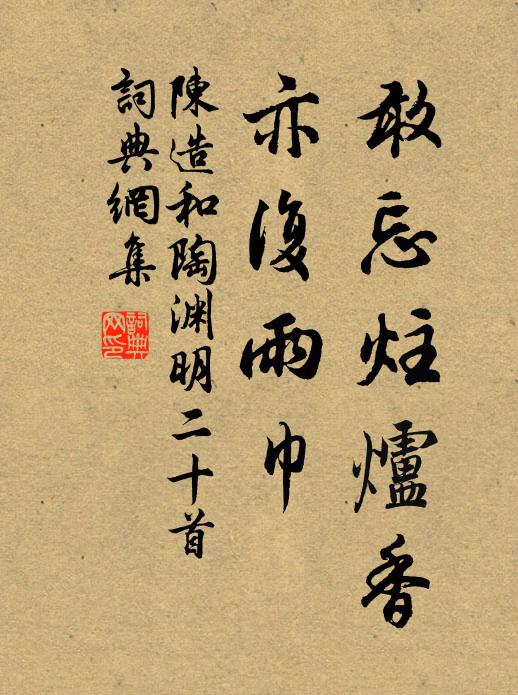 敢忘炷爐香
亦復雨巾
陳造和陶淵明二十首
詞典網集
詞典網印